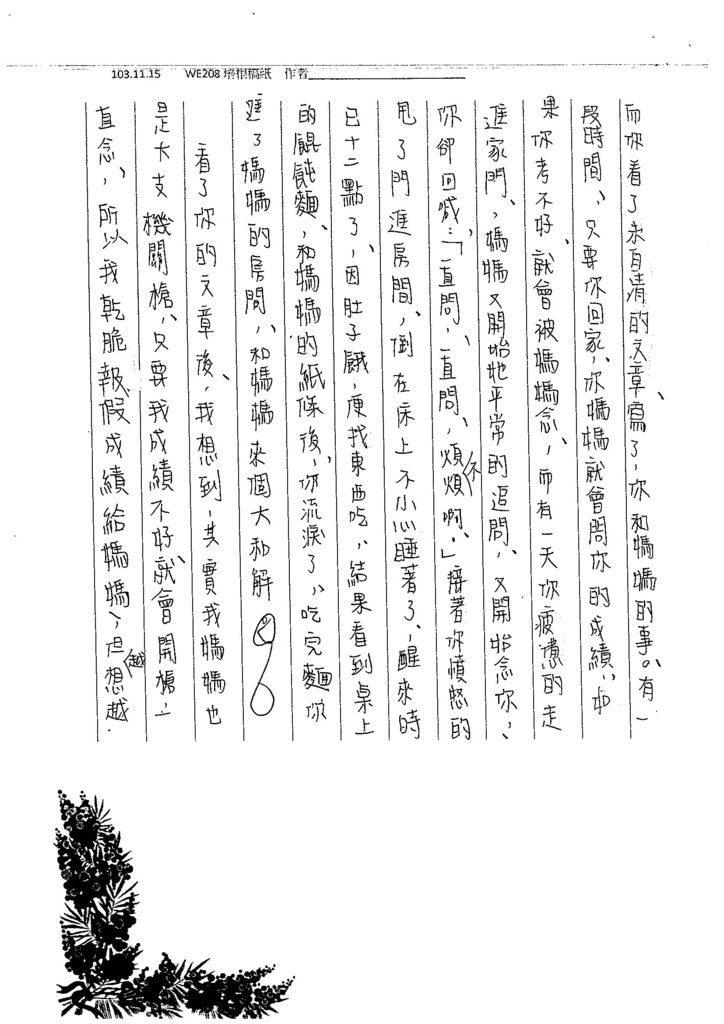 103.11.15 WE208 培根稿紙 作者
而你看了朱自清的文章、寫了，你和媽媽的事。有一
段時間、只要你回家，你媽媽就會問你的成績，如
果你考不好、就會被媽媽念、而有一天你疲憊的走
進家門、，媽媽又開始她平常的追問、又開始念你，
你卻回喊：「一直問，一直問、煩不煩啊！」接著你憤怒的
甩了門進房間，倒在床上不小心睡著了、，醒來時
已十二點了、，因肚子餓，便找東西吃，結果看到桌上
的餛飩麵、和媽媽的紙條後，你流淚了，吃完麵你
進了媽媽的房間，和媽媽來個大和解
看了你的文章後、我想到，其實我媽媽也
是大支機關槍、只要我成績不好、就會開槍，一
直念，所以我乾脆報假成績給媽媽，但想越越